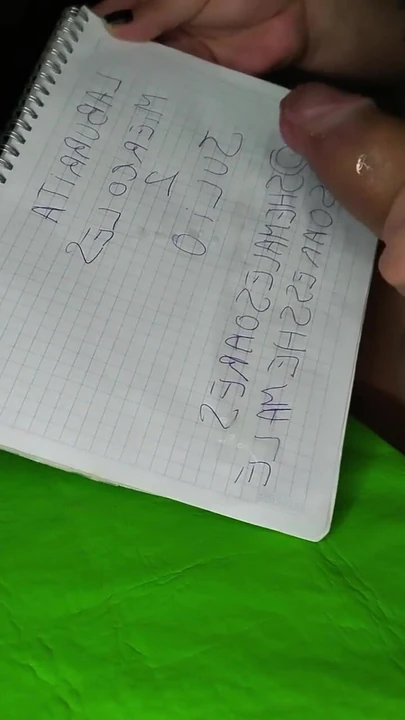 LABURRITA
MIERCOLES
2
JULIO
@SHEMALESOARES
SOARESHEMALE